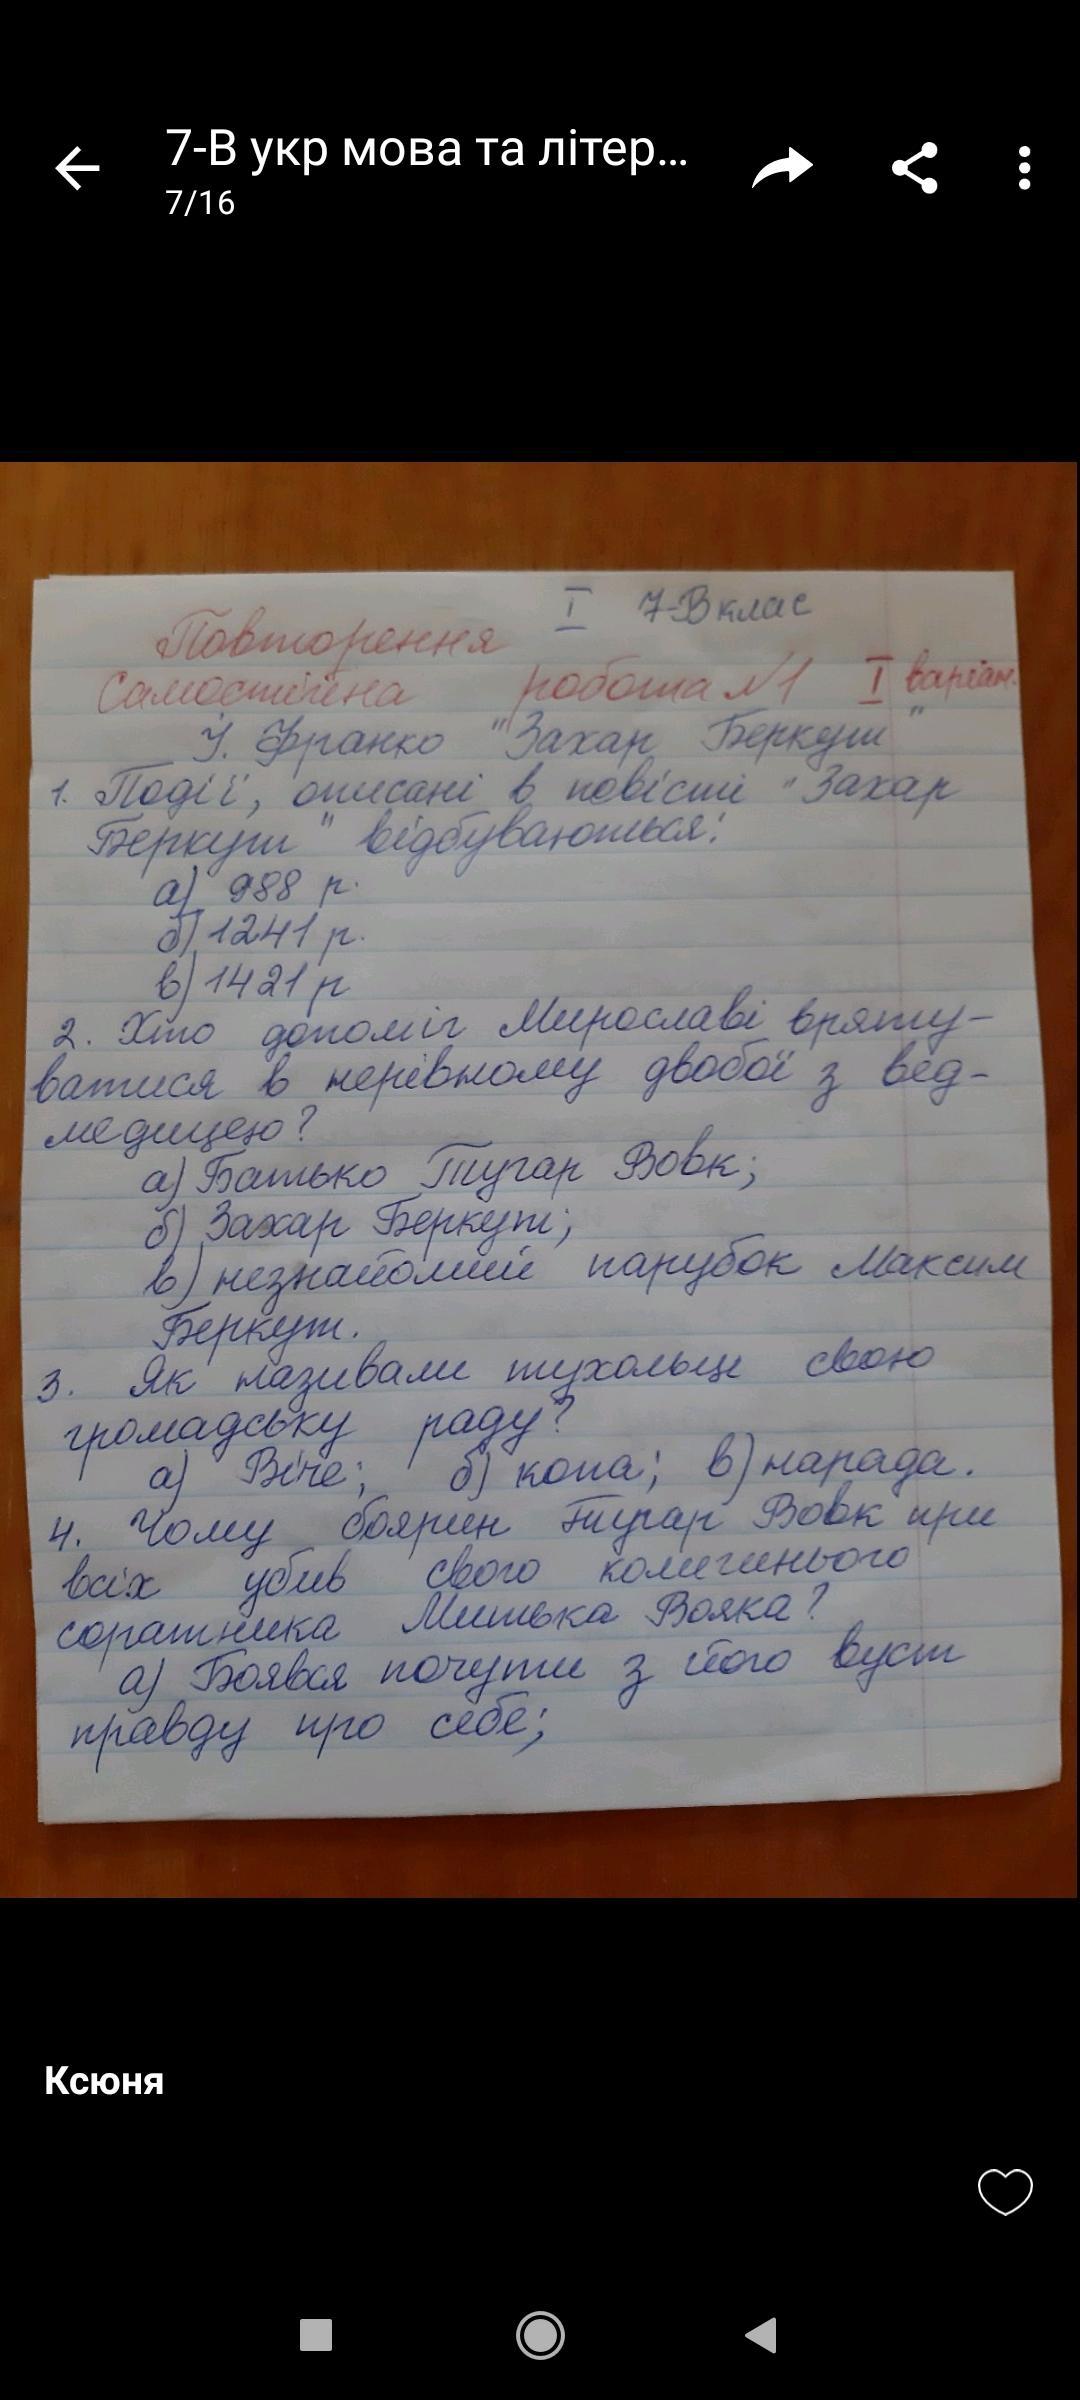 7-В укр мова та літер...
7/16
І 7-В клас
Повторення
Самостійна робота №1 І варіан.
І. Франко "Захар Беркут"
1. Події, описані в повісті "Захар
Беркут" відбуваються:
а) 988 р.
б) 1241 р.
в) 1421 р
2. Хто допоміг Мирославі вряту-
ватися в нерівному двобої з вед-
медицею?
а) Батько Тугар Вовк;
б) Захар Беркут;
в) незнайомий парубок Максим
Беркут.
3. Як називали тухольці свою
громадську раду?
а) Віче; б) копа; в) нарада.
4. Чому боярин Тугар Вовк при
всіх убив свого колишнього
соратника Митька Вояка?
а) Боявся почути з його вуст
правду про себе;
Ксюня